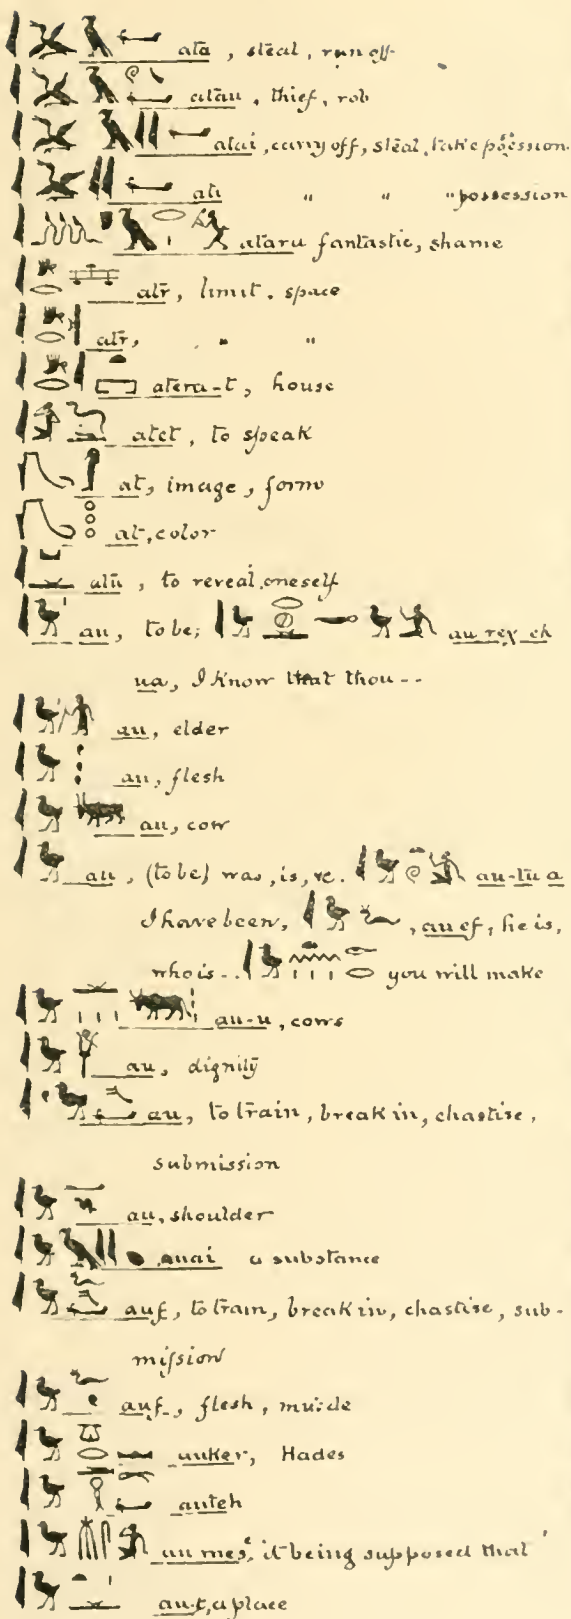 ata, steal, run off
atau, thief, rob
atai, carry off, steal, take possession
ati " " " possession
ataru fantastic, shame
atr, limit, space
atr, " "
atera-t, house
atet, to speak
at, image, form
at, color
atu, to reveal oneself
au, to be; au rex ek
ua, I know that thou --
au, elder
au, flesh
au, cow
au, (to be) was, is, &c. au-tu a
I have been, , au ef, he is,
who is -- you will make
au-u, cows
au, dignity
au, to train, break in, chastise,
submission
au, shoulder
auai a substance
auf, to train, break in, chastise, sub-
mission
auf, flesh, muscle
auker, Hades
auteh
au mes, it being supposed that
au-t, a place